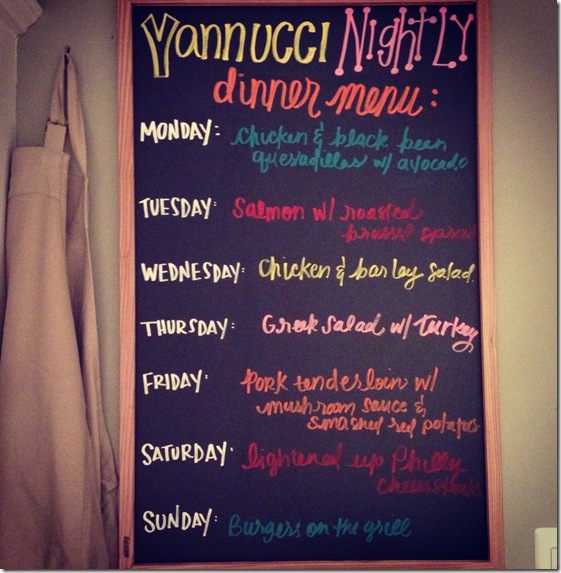 Yannucci Nightly
dinner menu:
MONDAY: Chicken & black bean
quesadillas w/ avocado
TUESDAY: Salmon w/ roasted
brussel sprout
WEDNESDAY: Chicken & barley salad
THURSDAY: Greek Salad w/ turkey
FRIDAY: Pork tenderloin w/
mushroom sauce &
smashed red potatoes
SATURDAY: lightened up Philly
cheesesteaks
SUNDAY: Burgers on the grill